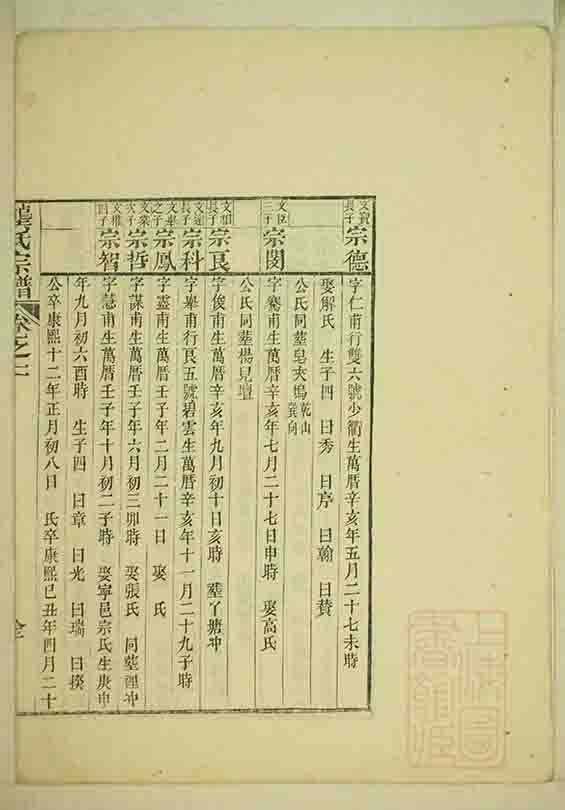 文寶長子 宗德 字仁甫行雙六號少衢生萬曆辛亥年五月二十七未時
娶解氏 生子四 曰秀 曰序 曰翰 曰贊
公氏同塟皂夾塢 乾山巽向
三子 宗閔 字騫甫生萬曆辛亥年七月二十七日申時 娶高氏
公氏同塟楊兒壇
長子 宗良 字俊甫生萬曆辛亥年九月初十日亥時 塟丫塘冲
長子 宗科 字舉甫行良五號碧雲生萬曆辛亥年十一月二十九子時
之子 宗鳳 字靈甫生萬曆壬子年二月二十一日 娶 氏
次子 宗哲 字謀甫生萬曆壬子年六月初三卯時 娶張氏 同塟冲
四子 宗智 字慧甫生萬曆壬子年十月初二子時 娶寧邑宗氏生庚申
年九月初六酉時 生子四 曰章 曰光 曰瑞 曰揆
公卒康熙十二年正月初八日 氏卒康熙己丑年四月二十
龔氏宗譜 卷之二
上海圖書館藏